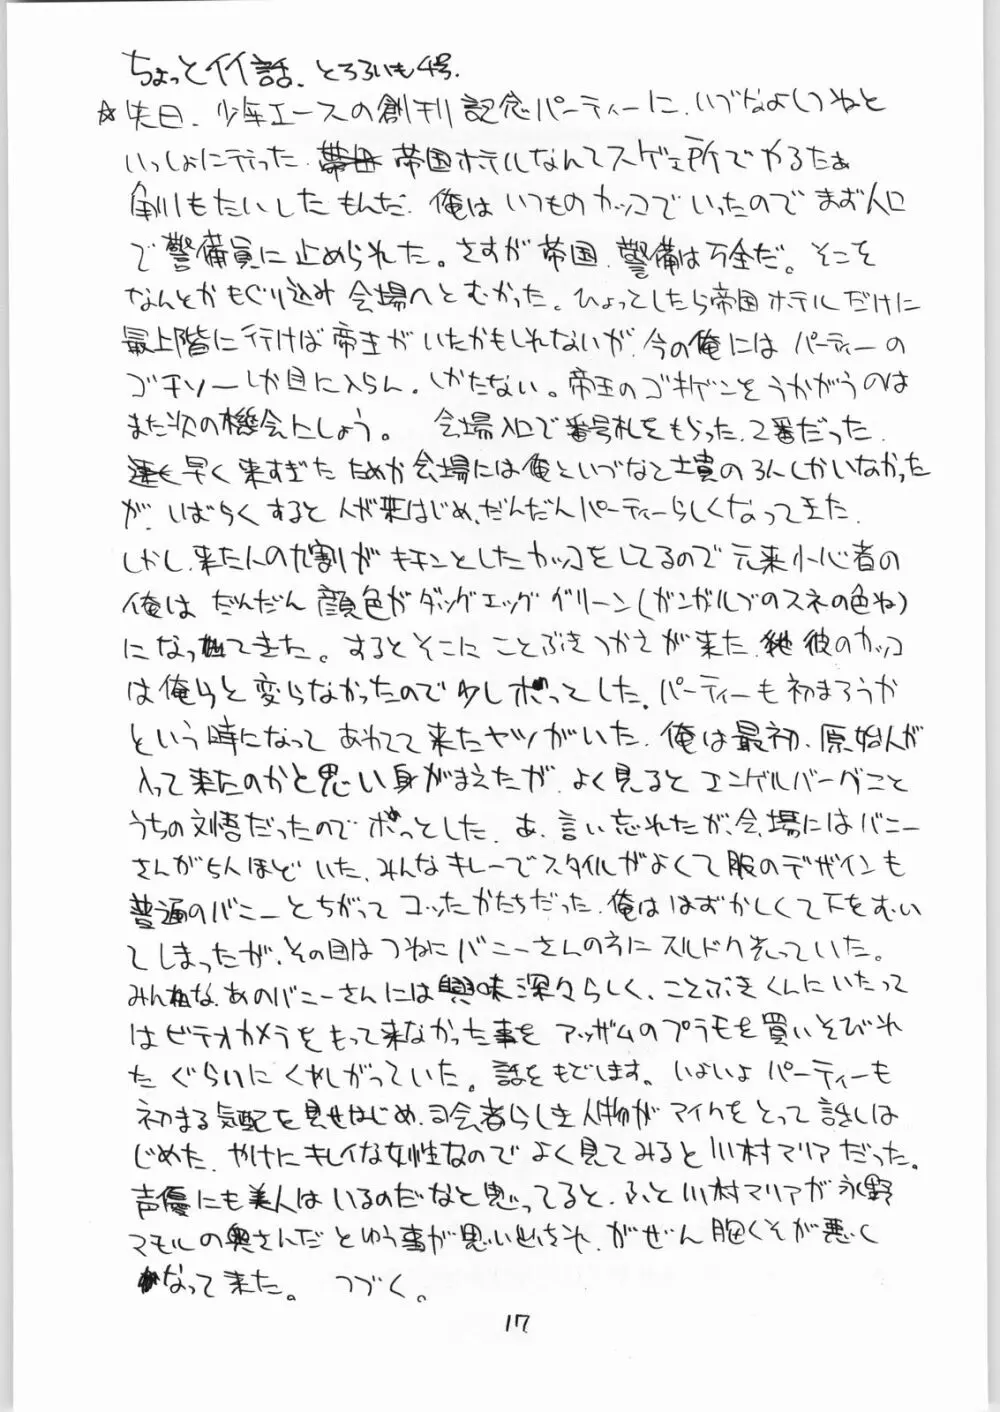 ちょっとイイ話、とろろいも4号.
☆先日、少年エースの創刊記念パーティーに、いづなよしつねと
いっしょに行った 帝国ホテルなんてスゲェ所でやるたぁ
角川もたいしたもんだ. 俺はいつものカッコでいったのでまず入口
で警備員に止められた。さすが帝国、警備は万全だ。そこを
なんとかもぐり込み会場へとむかった。ひょっとしたら帝国ホテルだけに
最上階に行けば帝王がいたかもしれないが、今の俺にはパーティーの
ゴチソーしか目に入らん、しかたない。帝王のゴキゲンをうかがうのは
また次の機会としよう。 会場入口で番号札をもらった、2番だった.
早く来すぎたためか会場には俺といづなと士貴の3人しかいなかった
が、しばらくすると人が来はじめ、だんだんパーティーらしくなってきた.
しかし、来た人の九割がキチンとしたカッコをしてるので元来小心者の
俺はだんだん顔色がダックエッググリーン(ガンガルブのスネの色ね)
になってきた。するとそこにことぶきつかさが来た、彼のカッコ
は俺らと変らなかったので少しホッってした。パーティーも初まろうか
という時になってあわてて来たヤツがいた. 俺は最初、原始人が
入って来たのかと思い身がまえたが、よく見るとエンゲルバーグこと
うちの刘悟だったのでホッっとした. あ、言い忘れたが、会場にはバニー
さんが5人ほどいた、みんなキレーでスタイルがよくて服のデザインも
普通のバニーとちがってコッたかたちだった. 俺ははずかしくて下をむい
てしまったが、その目はつねにバニーさんの方にスルドク光っていた。
みんな、あのバニーさんには興味深々らしく、ことぶきくんにいたって
はビデオカメラをもって来なかった事をアッザムのプラモを買いそびれ
たぐらいにくやしがっていた。話をもどします。いよいよパーティーも
初まる気配を見せはじめ、司会者らしき人物がマイクをとって話しは
じめた. やけにキレイな女性なのでよく見てみると川村マリアだった。
声優にも美人はいるのだなと思ってると、ふと川村マリアが永野
マモルの奥さんだとゆう事が思い出され、がぜん胸くそが悪く
なって来た。 つづく。
17